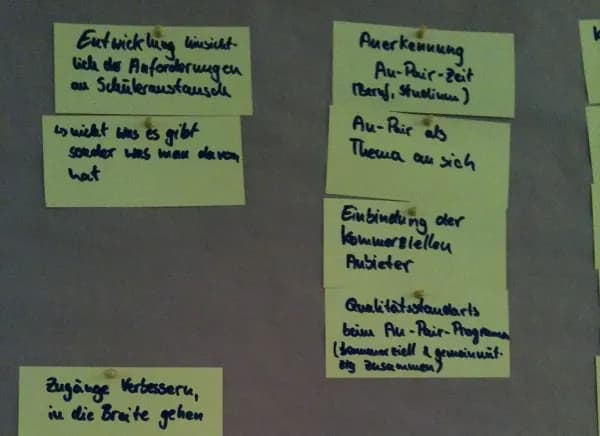 Entwicklung hinsicht-
lich der Anforderungen
an Schüleraustausch
↳ nicht was es gibt
sonder was man davon
hat
Zugänge Verbessern,
in die Breite gehen
Anerkennung
Au-Pair-Zeit
(Beruf, Studium)
Au-Pair als
Thema an sich
Einbindung der
kommerziellen
Anbieter
Qualitätsstandarts
beim Au-Pair-Programm
(kommerziell & gemeinnüt-
zig zusammen)